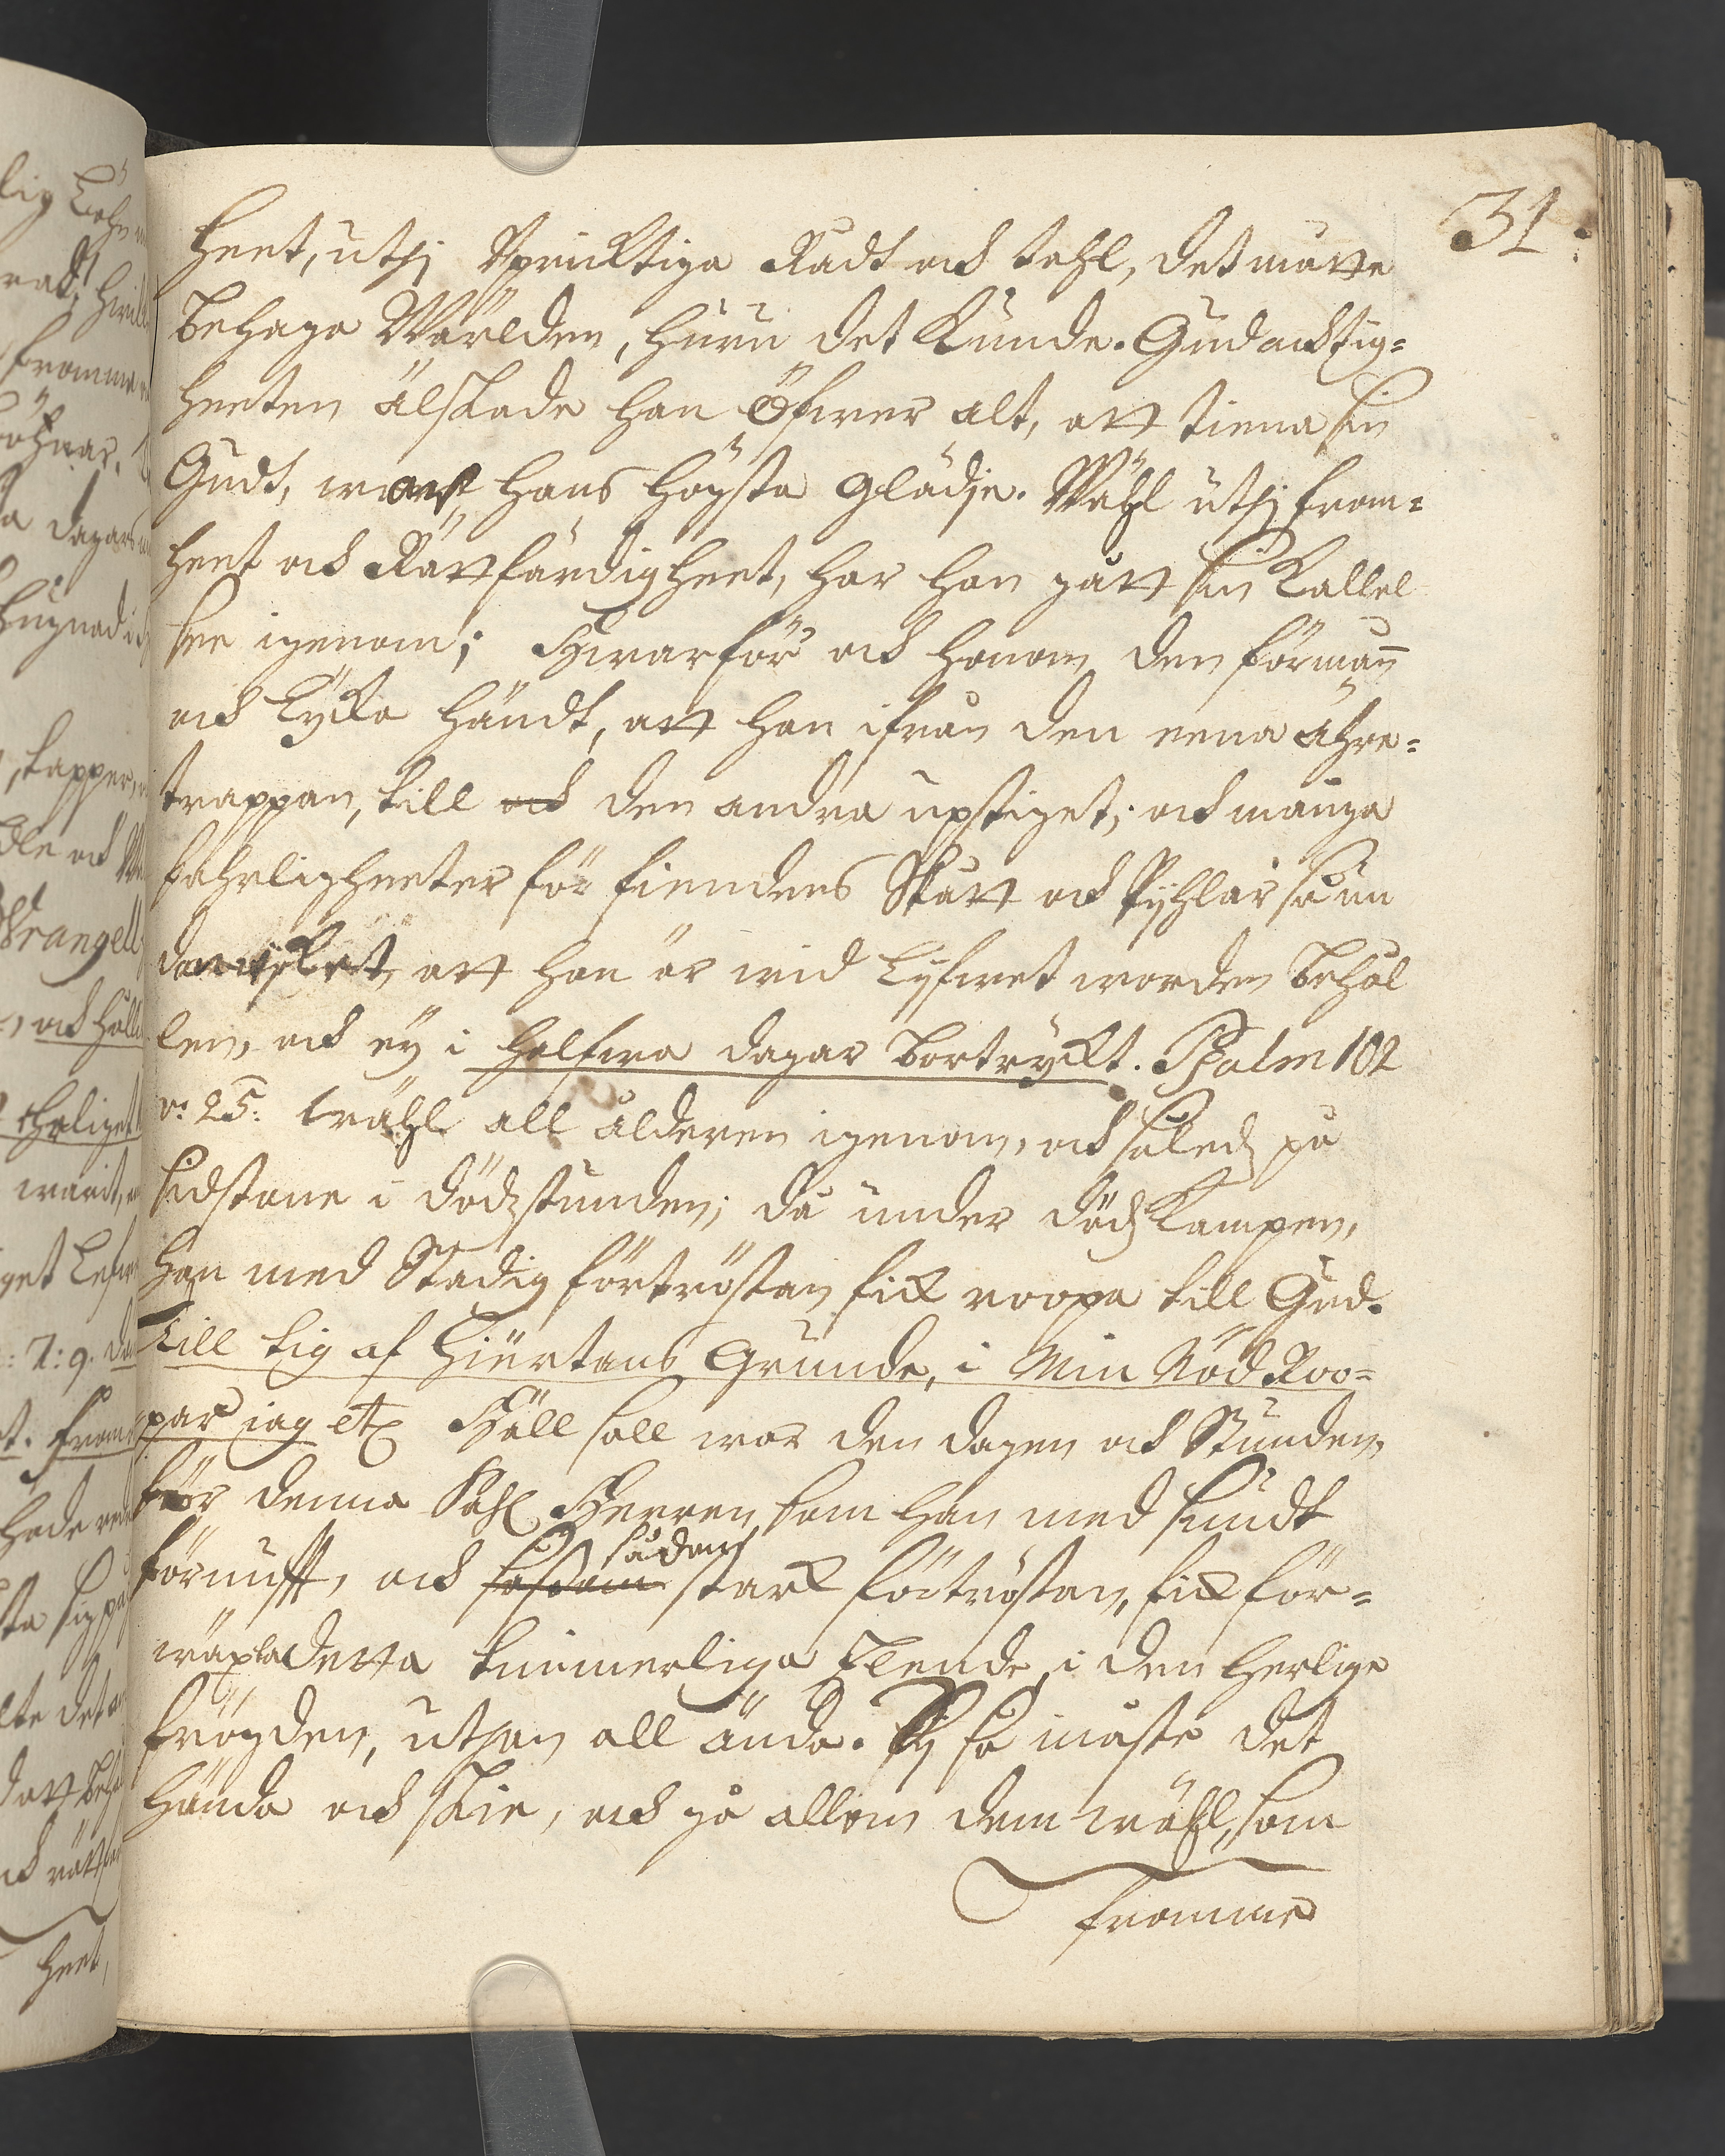 31.
heet, uthj Uprichtiga Rådt och tahl, det måtte
behaga Wärlden, huru det kunde. Gudachtig=
heeten älskade han öfwer alt, att tiena sin
Gudt, war hans högsta glädje. Wähl uthj from=
heet och Rättfärdigheet, har han gått sin Kallel
see igenom; Hwarför och honom den förmån
och lÿcka händt, att han ifrån den eena ähre=
trappan, till och den andra upstiget; och många
fahrligheeter för fiendens Skått och Pÿhlar så un
danwiket, att han är wid lÿfwet worden behål
len, och eÿ i halfwa dagar bortryckt. Psalm 102
v: 25: wähl all ålderen igenom, och såledz på
sidstone i dödzstunden; då under dödzkampen,
han med Stadig förtröstan fick roopa till Gud.
Till tig af hiertans grunde, i min Nöd Roo=
par iag etc Häll sall war den dagen och Stunden,
för denna Sahl Herren, som han med sundt
förnufft, och sådan starck förtröstan, fick för=
wäxla detta kummerliga Elende, i den herlige
frögden, uthan all ända. Tÿ så måste det
hända och skie, och gå allom dem wähl, som
fromme